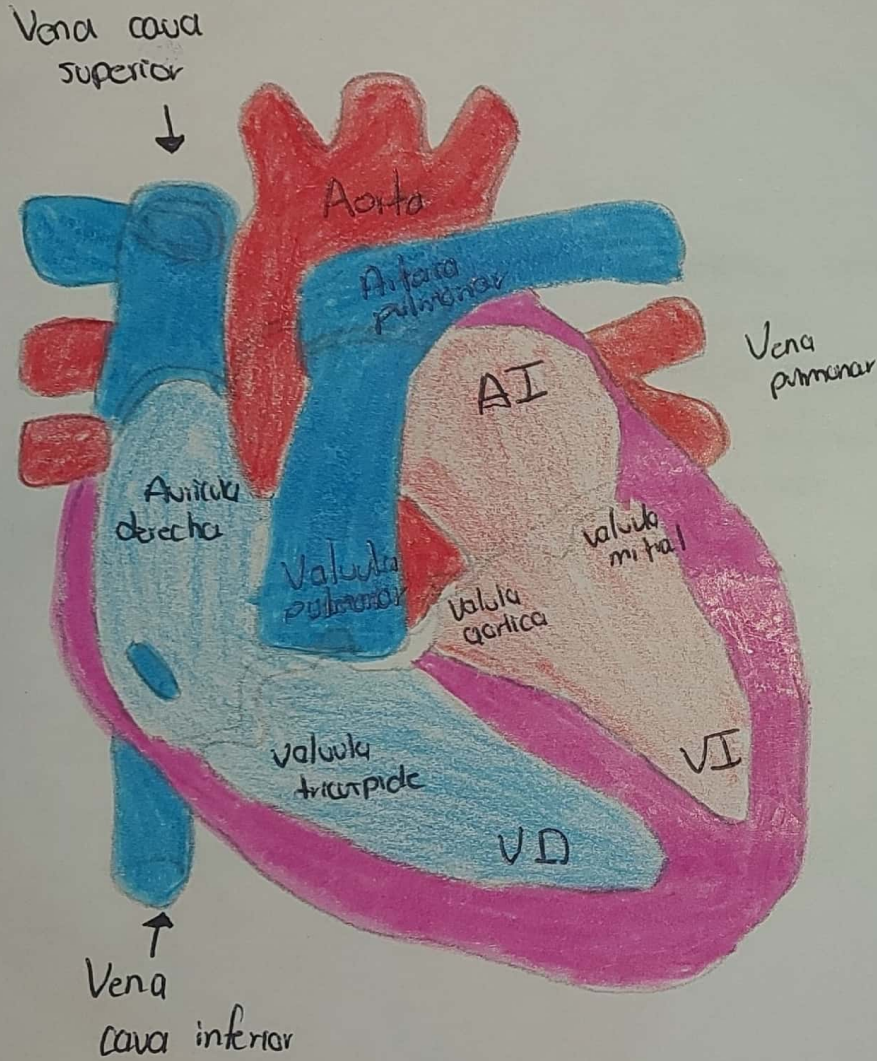 Vena cava
superior
Aorta
Arteria
pulmonar
Vena
pulmonar
AI
Auricula
derecha
Valvula
mitral
Valvula
pulmonar
Valula
aortica
VI
Valvula
tricuspide
VD
Vena
cava inferior